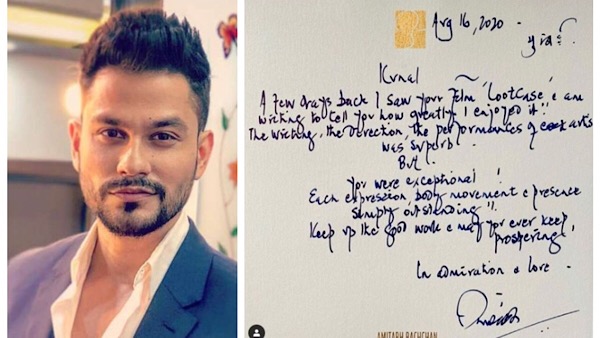 Aug 16, 2020
Kunal
A few days back I saw your film 'LootCase' & am
writing to tell you how greatly I enjoyed it !!
The writing, the direction, the performances of artists
was superb.
But
you were exceptional !
Each expression body movement & presence
simply outstanding !!
Keep up the good work & may you ever keep
prospering !
In admiration & love .
AMITABH BACHCHAN